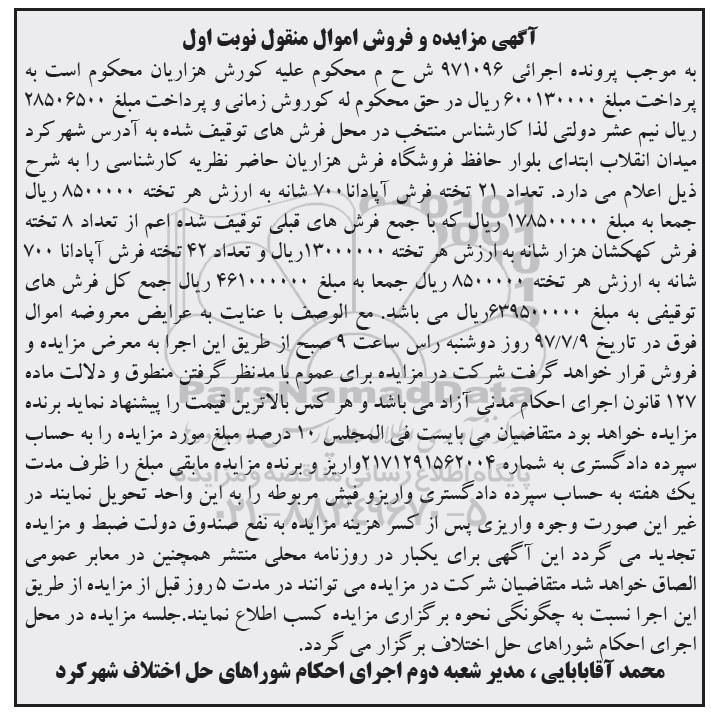 آگهی مزایده و فروش اموال منقول نوبت اول
به موجب پرونده اجرائی ۹۷۱۰۹۶ ش ح م محکوم علیه کورش هزاریان محکوم است به
پرداخت مبلغ ۶۰۰۱۳۰۰۰۰ ریال در حق محکوم له کوروش زمانی و پرداخت مبلغ ۲۸۵۰۶۵۰۰
ریال نیم عشر دولتی لذا کارشناس منتخب در محل فرش های توقیف شده به آدرس شهرکرد
میدان انقلاب ابتدای بلوار حافظ فروشگاه فرش هزاریان حاضر نظریه کارشناسی را به شرح
ذیل اعلام می دارد. تعداد ۲۱ تخته فرش آپادانا۷۰۰ شانه به ارزش هر تخته ۸۵۰۰۰۰۰ ریال
جمعا به مبلغ ۱۷۸۵۰۰۰۰۰ ریال که با جمع فرش های قبلی توقیف شده اعم از تعداد ۸ تخته
فرش کهکشان هزار شانه به ارزش هر تخته ۱۳۰۰۰۰۰۰ریال و تعداد ۴۲ تخته فرش آپادانا ۷۰۰
شانه به ارزش هر تخته ۸۵۰۰۰۰۰ ریال جمعا به مبلغ ۴۶۱۰۰۰۰۰۰ ریال جمع کل فرش های
توقیفی به مبلغ ۶۳۹۵۰۰۰۰۰ریال می باشد. مع الوصف با عنایت به عرایض معروضه اموال
فوق در تاریخ ۹۷/۷/۹ روز دوشنبه راس ساعت ۹ صبح از طریق این اجرا به معرض مزایده و
فروش قرار خواهد گرفت شرکت در مزایده برای عموم با مدنظر گرفتن منطوق و دلالت ماده
۱۲۷ قانون اجرای احکام مدنی آزاد می باشد و هر کس بالاترین قیمت را پیشنهاد نماید برنده
مزایده خواهد بود متقاضیان می بایست فی المجلس ۱۰ درصد مبلغ مورد مزایده را به حساب
سپرده دادگستری به شماره ۲۱۷۱۲۹۱۵۶۲۰۰۴واریز و برنده مزایده مابقی مبلغ را ظرف مدت
یک هفته به حساب سپرده دادگستری واریزو فیش مربوطه را به این واحد تحویل نمایند در
غیر این صورت وجوه واریزی پس از کسر هزینه مزایده به نفع صندوق دولت ضبط و مزایده
تجدید می گردد این آگهی برای یکبار در روزنامه محلی منتشر همچنین در معابر عمومی
الصاق خواهد شد متقاضیان شرکت در مزایده می توانند در مدت ۵ روز قبل از مزایده از طریق
این اجرا نسبت به چگونگی نحوه برگزاری مزایده کسب اطلاع نمایند.جلسه مزایده در محل
اجرای احکام شوراهای حل اختلاف برگزار می گردد.
محمد آقابابایی ، مدیر شعبه دوم اجرای احکام شوراهای حل اختلاف شهرکرد
ParsNamadData
پایگاه اطلاع رسانی مناقصه و مزایده
۰۲۱-۸۸۳۴۹۶۷۰-۵